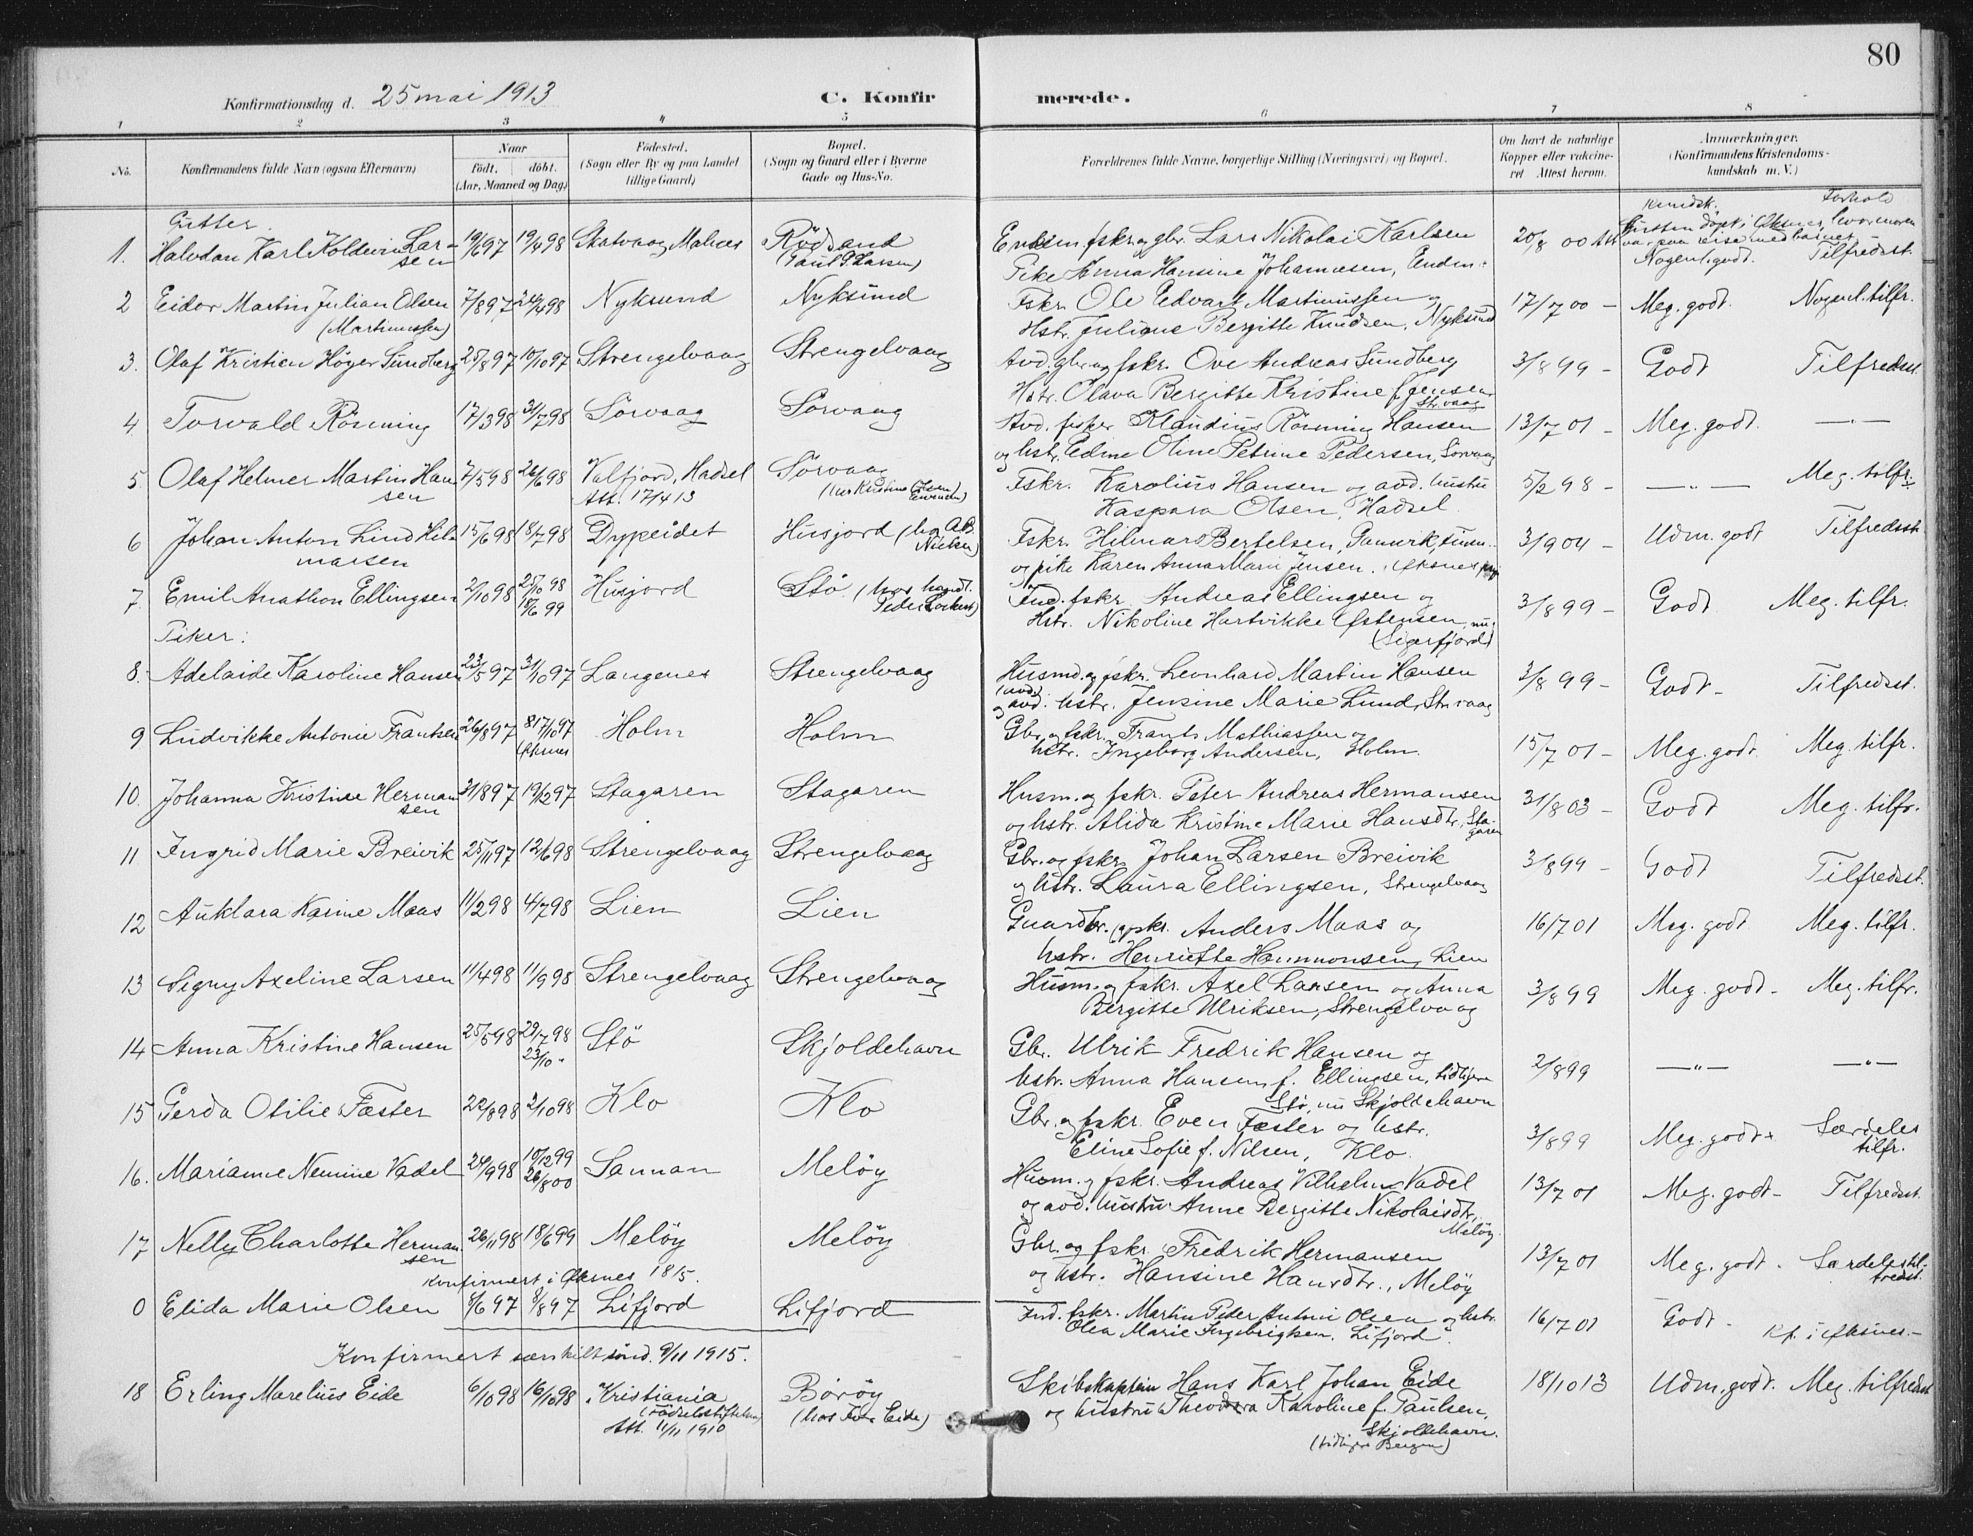 80
Konfirmationsdag d. 25 mai 1913 C. Konfirmerede.
1 2 3 4 5 6 7 8
No. Konfirmandens fulde Navn (ogsaa Efternavn) Naar født. døbt. (Aar, Maaned og Dag) Fødested. (Sogn eller By og paa Landet tillige Gaard) Bopæl. (Sogn og Gaard eller i Byerne Gade og Hus-No. Forældrenes fulde Navne, borgerlige Stilling (Næringsvei) og Bopæl. Om havt de naturlige Kopper eller vakcineret Attest herom. Anmærkninger. (Konfirmandens Kristendomskundskab m. V.)
Gutter. Kundsk. Forhold
1. Halvdan Karl Koldevin Larsen 19/6 97 19/4 98 Skatvaag, Malnes Rödsand (Paul P. Larsen) Enkem. fskr. og gbr. Lars Nikolai Karlsen 20/8 00
Pike Anna Hansine Johannesen, Nogenl. godt. Tilfredsst.
2 Eidor Martin Julian Olsen (Martinussen) 7/8 97 24/4 98 Nyksund Nyksund Fskr. Ole Edvart Martinussen og 17/7 00 - Meg. godt. Nogenl. tilfr.
Hstr. Juliane Bergitte Knudsen, Nyksund
3. Olaf Kristian Höyer Sundberg 25/8 97 10/10 97 Strengelvaag Strengelvaag Avd. gbr. og fskr. Ove Andreas Sundberg 3/8 99 - Godt Tilfredsst
Hstr. Olava Bergitte Kristine f. Jensen, Str.vaag
4. Torvald Rönning 17/3 98 31/7 98 Sörvaag Sörvaag Avd. fisker Klaudius Rönning Hansen 13/7 01 - Meg. godt. —"—
og hstr. Edine Oline Petrine Pedersen, Sörvaag
5. Olaf Helmer Martin Hansen 7/5 98 26/6 98 Valfjord, Hadsel Att. 17/4 13 Sörvaag Fskr. Karolius Hansen og avd. hustru 5/2 98 - —"— Meg. tilfr.
Kaspara Olsen, Hadsel.
6 Johan Anton Lind Hilmarsen 15/6 98 18/7 98 Dypeidet Husjord Fskr. Hilmar Bertelsen, 3/9 04 - Udm. godt Tilfredsst.
og pike Karen Anna Marie Jensen,
7. Emil Anathon Ellingsen 2/10 98 25/10 98 18/6 99 Husjord Stö (hos handl. Peder Lockert) Ind. fskr. Andreas Ellingsen og 3/8 99 - Godt Meg. tilfr.
Hstr. Nikoline Hartvikke Östensen, nu (Sigerfjord)
Piker:
8. Adelaide Karoline Hansen 23/5 97 31/10 97 Langenes Strengelvaag Husmd. og fskr. Leonhard Martin Hansen 3/8 99 - Godt - Tilfredsst.
og avd. hstr. Jensine Marie Lund, Str.vaag
9 Ludvikke Antonie Frantsen 26/8 97 17/10 97 Öksnes Holm Holm Gbr. og fskr. Frants Mathiassen og 15/7 01 - Meg. godt. Meg. tilfr.
hstr. Ingeborg Andersen, Holm.
10. Johanna Kristine Hermansen 31/8 97 19/12 97 Stagaren Stagaren Husm. og fskr. Peter Andreas Hermansen 31/8 03 - Godt Meg. tilfr.
og hstr. Alida Kristine Marie Hansdtr, Stagaren
11 Ingrid Marie Breivik 25/11 97 12/6 98 Strengelvaag Strengelvaag Gbr. og fskr. Johan Larsen Breivik 3/8 99 - Godt Tilfredsst.
og hstr. Laura Ellingsen, Strengelvaag
12 Auklara Karine Maas 11/2 98 4/7 98 Lien Lien Gaardbr. og fskr. Anders Maas og 16/7 01 Meg. godt Meg. tilfr.
hstr. Henriette Hammonsen, Lien
13 Signy Axeline Larsen 11/4 98 11/9 98 Strengelvaag Strengelvaag Husm. og fskr. Axel Larsen og Anna 3/8 99 Meg. godt - Meg. tilfr.
Bergitte Ulriksen, Strengelvaag
14 Anna Kristine Hansen 25/5 98 29/7 98 23/10 " Stö Skjoldehavn Gbr. Ulrik Fredrik Hansen og 2/8 99 —"— —"—
hstr. Anna Hansen f. Ellingsen, tidligere Stö, nu Skjoldehavn
15 Gerda Otilie Fæster 22/8 98 2/10 98 Klo Klo Gbr. og fskr. Even Fæster og hstr. 3/8 99 Meg. godt Særdeles tilfr.
Eline Sofie f. Nilsen, Klo.
16. Marianne Nennine Vadel 24/9 98 10/12 99 26/8 00 Sannan Melöy Husm. og fskr. Andreas Vilhelm Vadel 13/7 01 Meg. godt - Tilfredsst.
og avd. hustru Anne Bergitte Nikolaisdtr, Melöy.
17 Nelly Charlotte Hermansen 26/11 98 18/6 99 Melöy Melöy Gbr. og fskr. Fredrik Hermansen 13/7 01 Meg. godt - Særdeles tilfredsst.
og hstr. Hansine Hansdtr., Melöy
Konfirmert i Öksnes 1815.
0 Elida Marie Olsen 6/6 97 8/8 97 Lifjord Lifjord Ind. fskr. Martin Peter Antoni Olsen og hstr. 16/7 01 Godt - Kf. i Öksnes. -
Olea Marie Ingebrigtsen, Lifjord.
Konfirmert særskilt sönd. 9/11 1915.
18 Erling Marelius Eide 6/10 98 16/10 98 Kristiania (Födselsstiftelsen) Att. 11/11 1910 Böröy (hos Eide) Skibskaptein Hans Karl Johan Eide 18/10 13 Udm. godt. Meg. tilfredsst
og hustru Theodora Karoline f. Paulsen, Skjoldehavn. (tidligere Bergen)